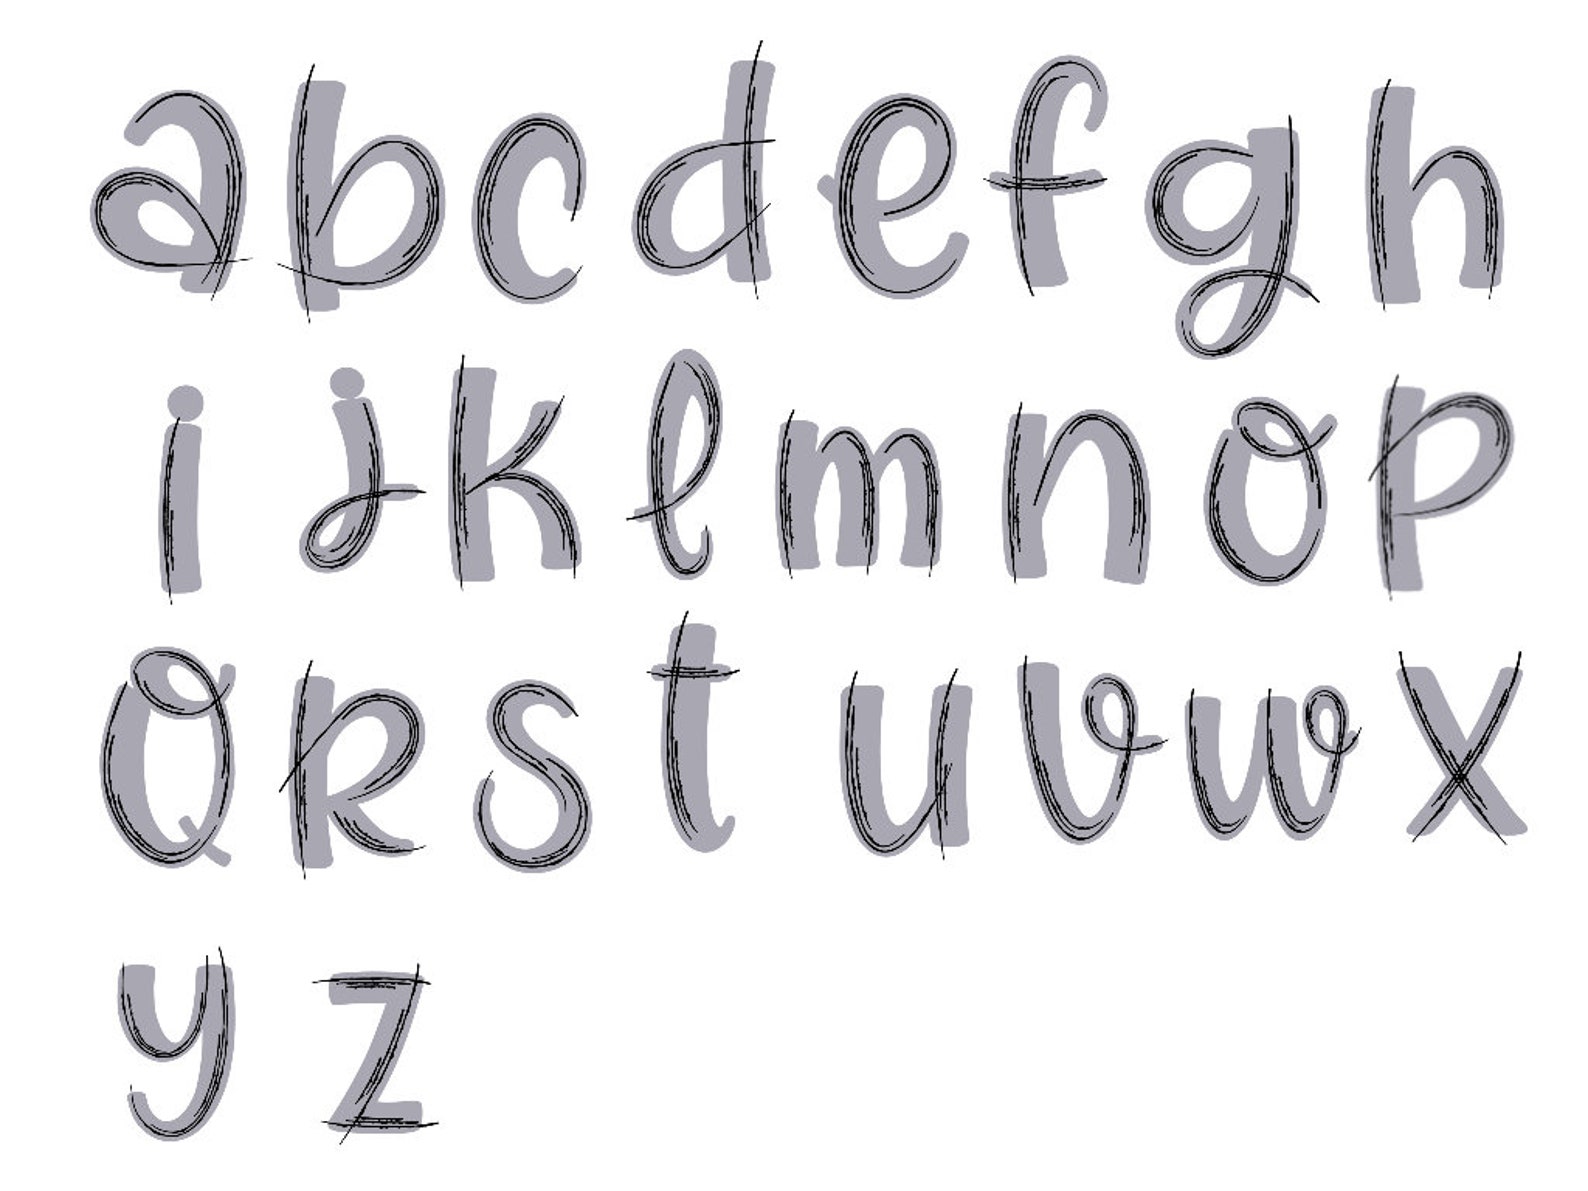 a b c d e f g h
i j k l m n o p
Q R s t u v w x
y z